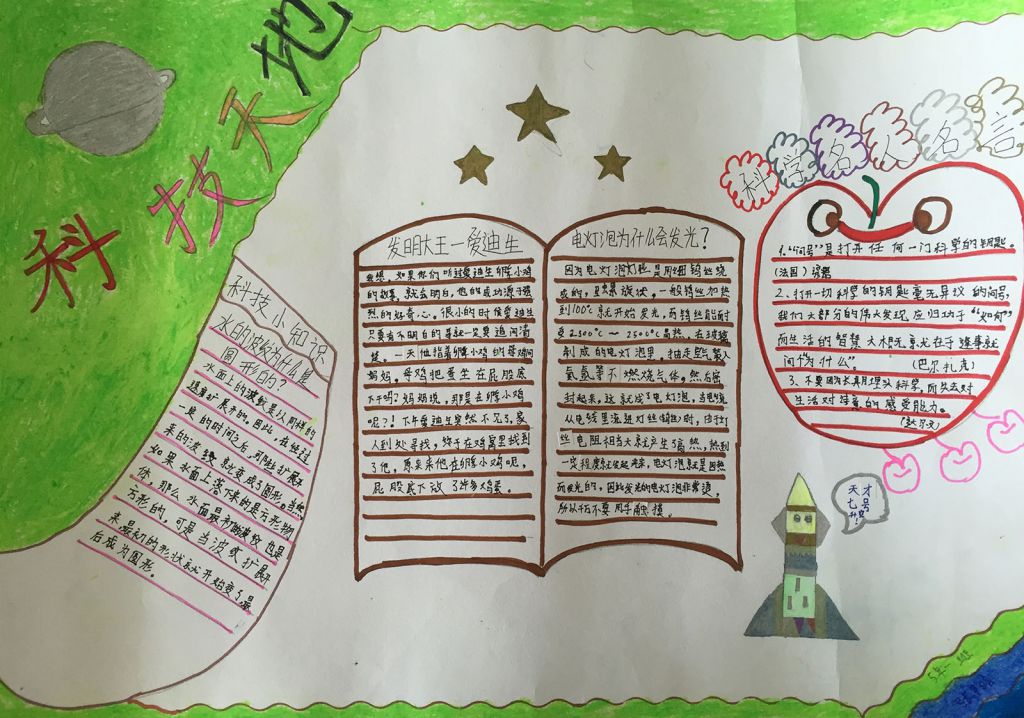 科技天地
科技小知识
水的波纹为什么是
圆形的？
水面上的波纹是以同样的
速度扩展开的。因此，在经过
一定的时间之后，刚刚扩展开
来的波纹就变成了圆形。当然
如果水面上落下来的是方形物
体，那么水面最初的波纹也是
方形的，可是当波纹扩展开
来，最初的形状就开始变了，最
后成为圆形。
发明大王一爱迪生
我想，如果你们听过爱迪生孵小鸡
的故事，就会明白，他的成功源于强
烈的好奇心。很小的时候爱迪生
只要有不明白的事就一定要追问清
楚。一天他指着孵小鸡的母鸡问
妈妈，母鸡把蛋坐在屁股底
下干吗？妈妈说，那是在孵小鸡
呢？！下午爱迪生突然不见了，家
人到处寻找，终于在鸡窝里找到
了他，原来他在孵小鸡呢，
屁股底下放了许多鸡蛋。
电灯泡为什么会发光？
因为电灯泡灯丝是用细钨丝烧
成的，一般钨丝加热
到100℃就开始发光，而钨丝能耐
受2500℃～2500℃高热，在玻璃
制成的电灯泡里，抽走空气，装入
氩氮等不燃烧气体，然后密
封起来，这就成了电灯泡，当电流
从电线里流进灯丝细丝时，由于灯
丝电阻相当大就产生了高热，热到
一定程度就发起光来，电灯泡就是因热
而发光的，因此发光的电灯泡非常烫，
所以千万不要用手触摸。
科学名人名言
1、“问号”是打开任何一门科学的钥匙。
(法国)
2、打开一切科学的钥匙毫无异议的问号，
我们大部分的伟大发现应归功于“如何”
而生活的智慧大概无就在于逢事就
问“为什么”。（巴尔扎克）
3、不要因为长期埋头科学，而失去对
生活对诗意的感受能力。
（达尔文）
才号
天七